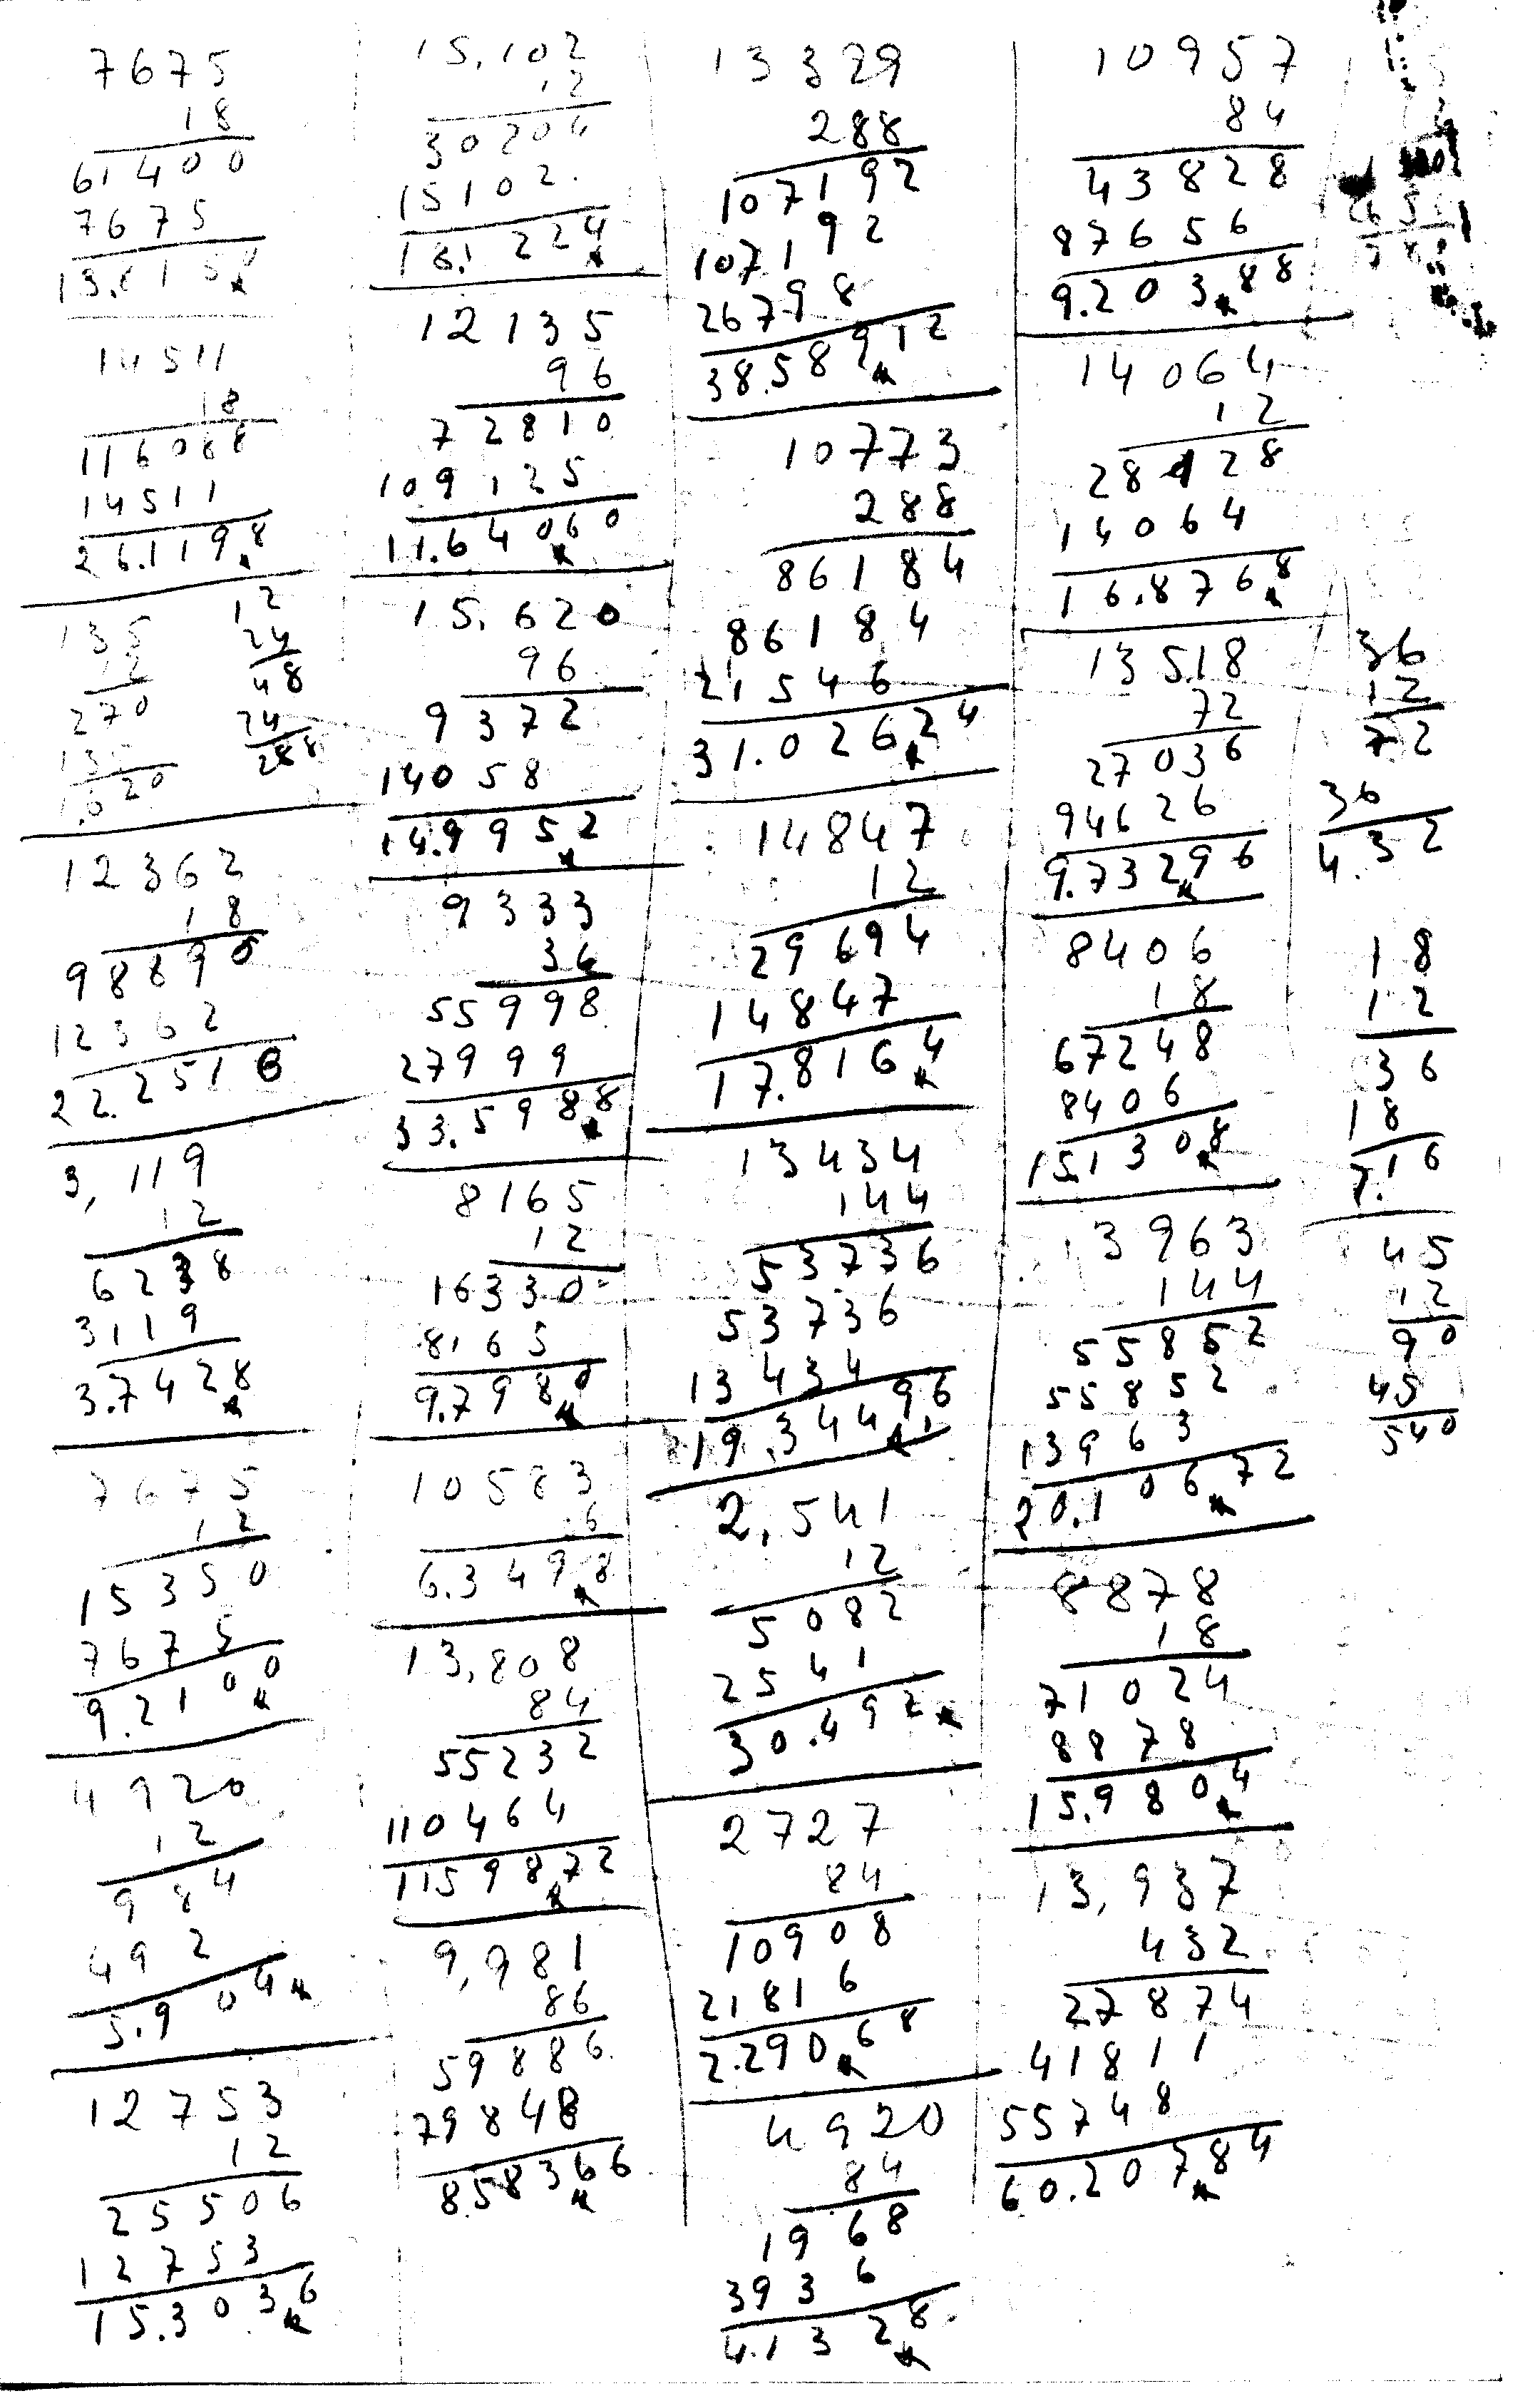 7675
18
61400
7675
13.815
14511
18
116088
14511
26.1198
135
12
270
135
1.620
12
24
48
24
288
12362
18
98890
12362
22.2516
3,119
12
6238
3119
3.7428
7675
12
15350
7675
9.2100
4920
12
984
492
5.904
12753
12
25506
12753
15.3036
15,102
12
30204
15102
18.1224
12135
96
72810
109125
11.64060
15.620
96
9372
14058
14.9952
9333
36
55998
27999
33.5988
8165
12
16330
8165
9.7980
10583
6
6.3498
13,808
84
55232
110464
1159872
9,981
86
59886
79848
858366
13329
288
107192
107192
26798
38.58912
10773
288
86184
86184
21546
31.02624
14847
12
29694
14847
17.8164
13434
144
53736
53736
13434
19.34496
2,541
12
5082
2541
30.492
2727
84
10908
21816
2.29068
4920
84
1968
3936
4.1328
10957
84
43828
87656
9.20388
14064
12
28128
14064
16.8768
13518
72
27036
94626
9.73296
8406
18
67248
8406
15.1308
13963
144
55852
55852
13963
20.10672
8878
18
71024
8878
15.9804
13,937
432
27874
41811
55748
60.20784
36
12
72
36
4.32
18
12
36
18
7.16
45
12
90
45
540